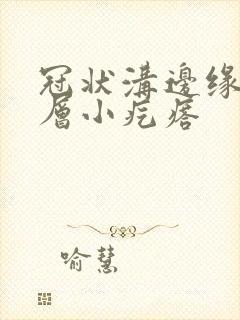 冠状溝邊缘
層小疙瘩
喻慧